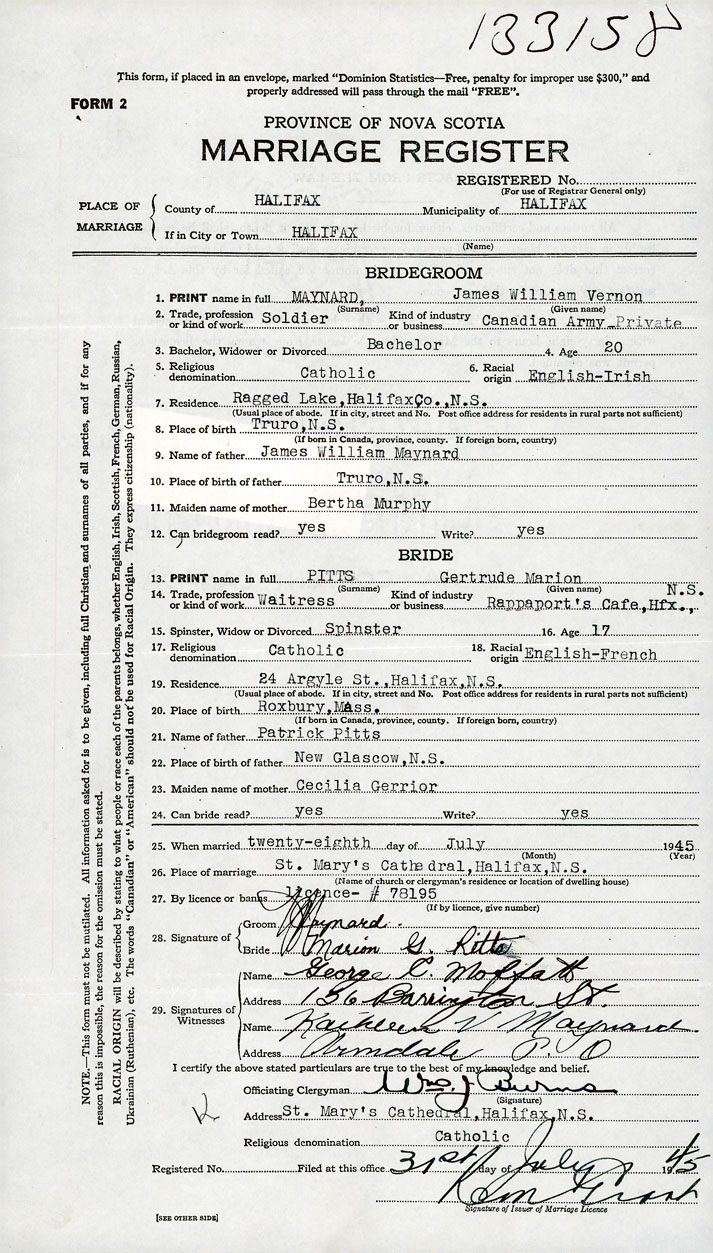 133158
This form, if placed in an envelope, marked “Dominion Statistics—Free, penalty for improper use $300,” and
properly addressed will pass through the mail “FREE”.
FORM 2
PROVINCE OF NOVA SCOTIA
MARRIAGE REGISTER
REGISTERED No.
(For use of Registrar General only)
PLACE OF MARRIAGE
County of HALIFAX Municipality of HALIFAX
If in City or Town HALIFAX
(Name)
BRIDEGROOM
1. PRINT name in full MAYNARD, James William Vernon
(Surname) (Given name)
2. Trade, profession or kind of work Soldier Kind of industry or business Canadian Army Private
3. Bachelor, Widower or Divorced Bachelor 4. Age 20
5. Religious denomination Catholic 6. Racial origin English-Irish
7. Residence Ragged Lake, Halifax Co., N.S.
(Usual place of abode. If in city, street and No. Post office address for residents in rural parts not sufficient)
8. Place of birth Truro, N.S.
(If born in Canada, province, county. If foreign born, country)
9. Name of father James William Maynard
10. Place of birth of father Truro, N.S.
11. Maiden name of mother Bertha Murphy
12. Can bridegroom read? yes Write? yes
BRIDE
13. PRINT name in full PITTS Gertrude Marion
(Surname) (Given name)
14. Trade, profession or kind of work Waitress Kind of industry or business Rappaport's Cafe, Hfx., N.S.
15. Spinster, Widow or Divorced Spinster 16. Age 17
17. Religious denomination Catholic 18. Racial origin English-French
19. Residence 24 Argyle St., Halifax, N.S.
(Usual place of abode. If in city, street and No. Post office address for residents in rural parts not sufficient)
20. Place of birth Roxbury, Mass.
(If born in Canada, province, county. If foreign born, country)
21. Name of father Patrick Pitts
22. Place of birth of father New Glascow, N.S.
23. Maiden name of mother Cecilia Gerrior
24. Can bride read? yes Write? yes
25. When married twenty-eighth day of July 1945
(Month) (Year)
26. Place of marriage St. Mary's Cathedral, Halifax, N.S.
(Name of church or clergyman's residence or location of dwelling house)
27. By licence or banns licence- # 78195
(If by licence, give number)
28. Signature of
Groom Maynard.
Bride Marion G. Pitts
29. Signatures of Witnesses
Name George C. Moffatt
Address 156 Barrington St.
Name Kathleen V Maynard
Address Armdale P.O
I certify the above stated particulars are true to the best of my knowledge and belief.
Officiating Clergyman Wm. J. Burns
(Signature)
Address St. Mary's Cathedral, Halifax, N.S.
Religious denomination Catholic
Registered No. Filed at this office 31st day of July 1945
Grant
Signature of Issuer of Marriage Licence
[SEE OTHER SIDE]
NOTE.—This form must not be mutilated. All information asked for is to be given, including full Christian and surnames of all parties, and if for any
reason this is impossible, the reason for the omission must be stated.
RACIAL ORIGIN will be described by stating to what people or race each of the parents belongs, whether English, Irish, Scottish, French, German, Russian,
Ukrainian (Ruthenian), etc. The words “Canadian” or “American” should not be used for Racial Origin. They express citizenship (nationality).